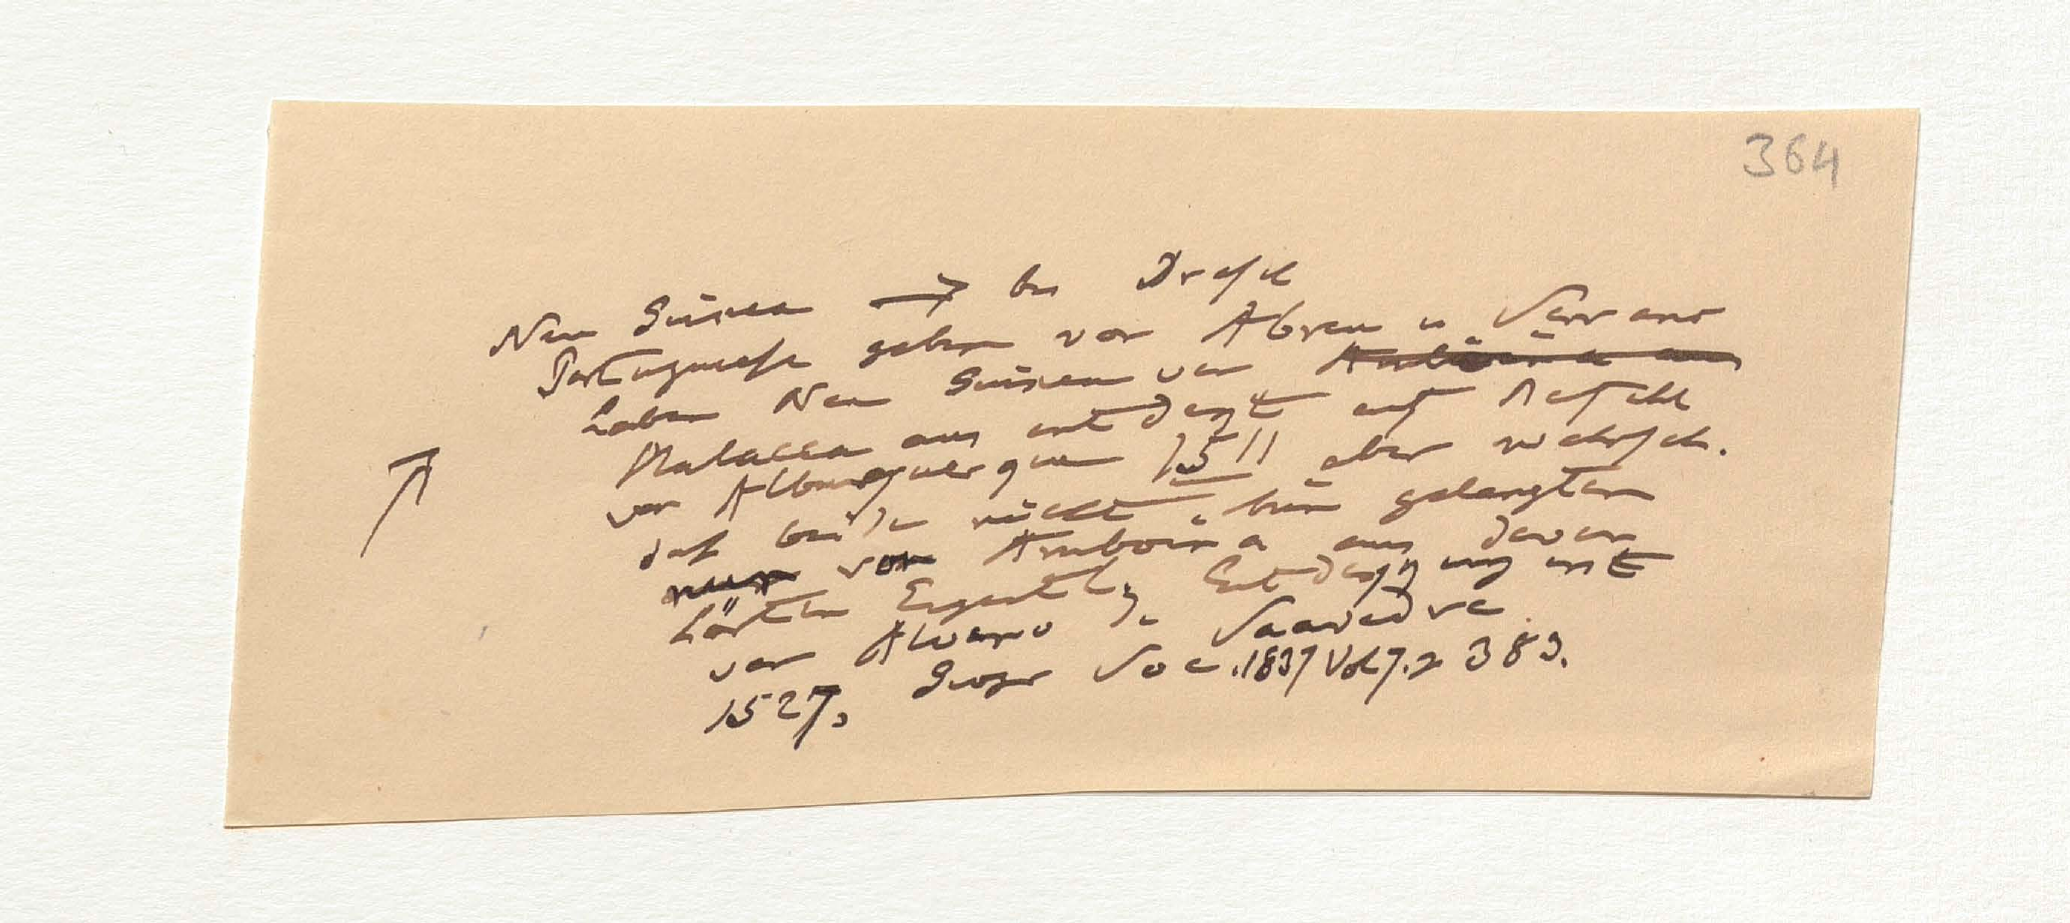 364
Neu Guinea → bei
Portugiesen geben vor Abreu u Serrano
haben Neu Guinea von
Malacca aus entdeckt auf Befehl
von Albuquerque 1511 aber wahrsch.
daß beide nicht hin gelangten
nur von Amboina aus davon
hörten Eigentl. Entdeckung erst
von Alvaro de Saavedra
1527. Geogr Soc. 1837 Vol 7. p 383.